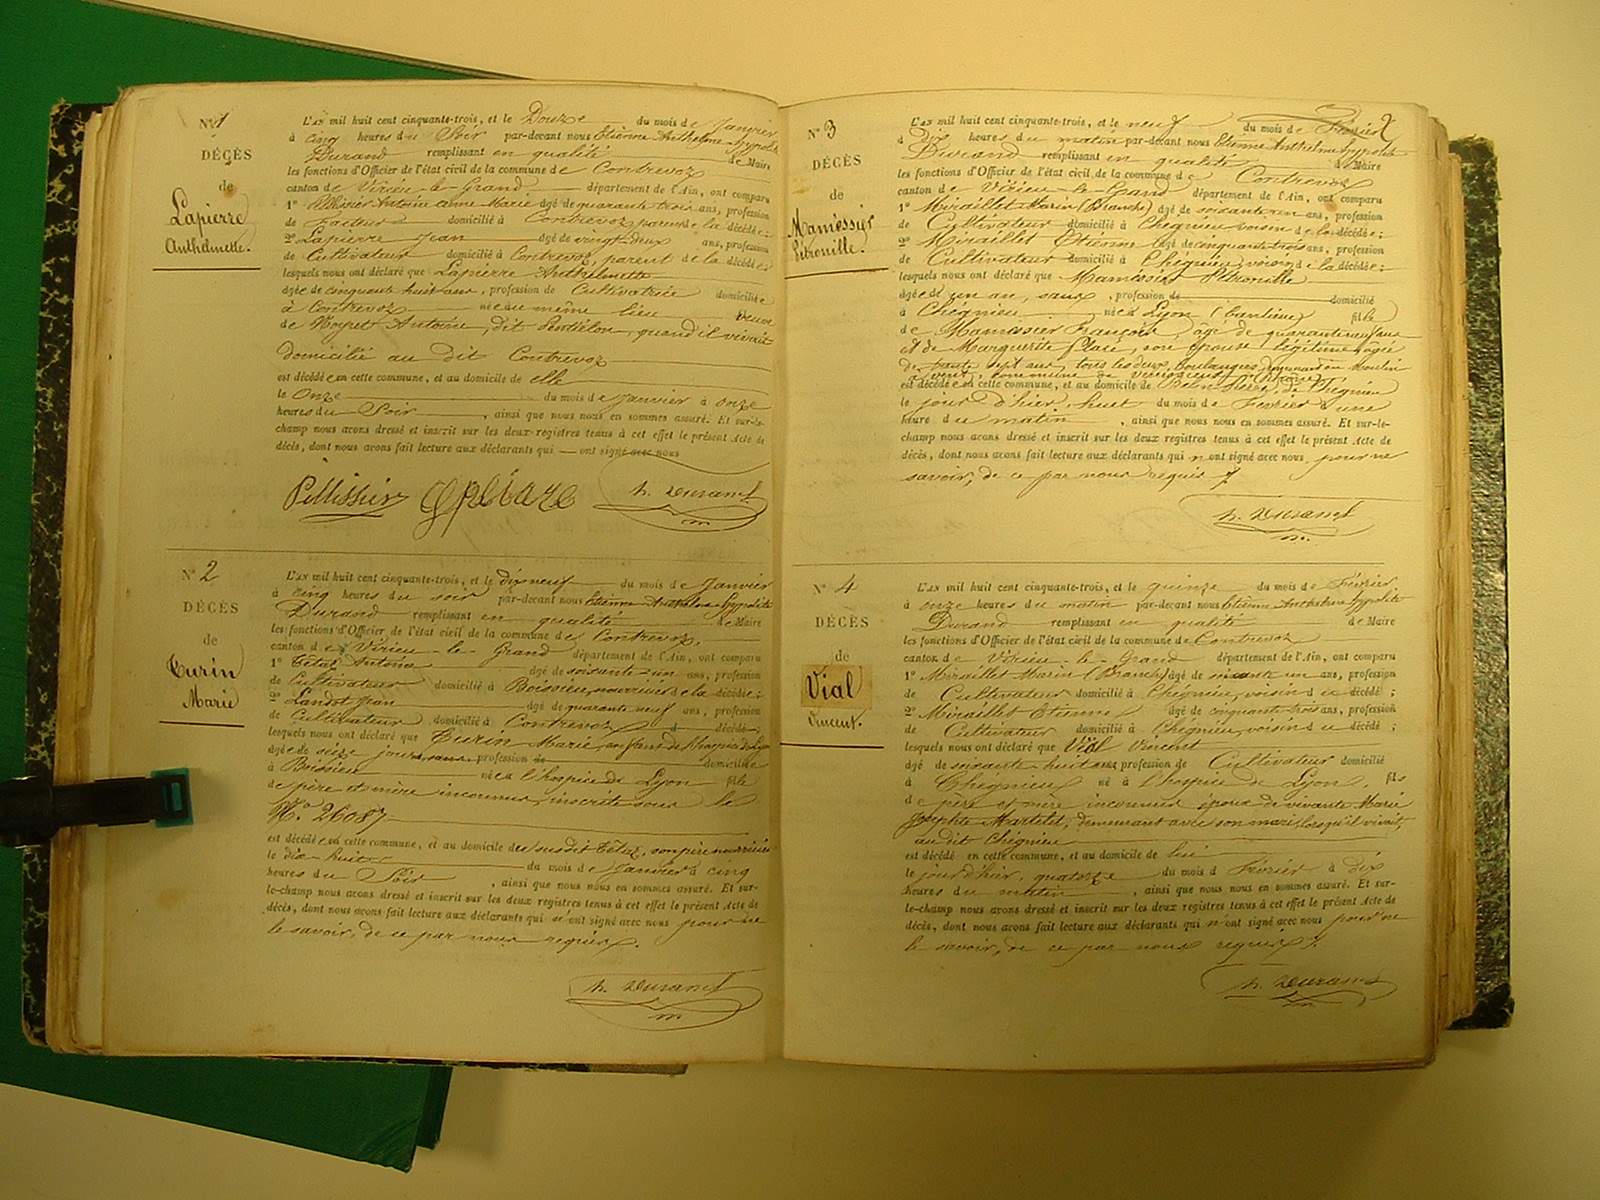 N° 1
DÉCÈS
de
Lapierre
Anthelmette.
L'AN mil huit cent cinquante-trois, et le Douze du mois de Janvier
à cinq heures du Soir par-devant nous Etienne Anthelme Hypolite
Durand remplissant en qualité de Maire
les fonctions d'Officier de l'état civil de la commune de Contrevoz
canton de Virieu-le-Grand département de l'Ain, ont comparu
1° Antoine Marie âgé de quarante trois ans, profession
de Facteur domicilié à Contrevoz, parent de la décédée ;
2° Lapierre Jean âgé de vingt-deux ans, profession
de Cultivateur domicilié à Contrevoz, parent de la décédée ;
lesquels nous ont déclaré que Lapierre Anthelmette
âgée de cinquante huit ans, profession de Cultivatrice domiciliée
à Contrevoz née au même lieu veuve
de Antoine, dit quand il vivait
domicilié au dit Contrevoz
est décédée en cette commune, et au domicile de elle
le Onze du mois de Janvier à onze
heures du Soir, ainsi que nous nous en sommes assuré. Et sur-le-
champ nous avons dressé et inscrit sur les deux registres tenus à cet effet le présent Acte de
décès, dont nous avons fait lecture aux déclarants qui ont signé avec nous
Pellissier h. Durand
N° 2
DÉCÈS
de
Turin
Marie
L'AN mil huit cent cinquante-trois, et le dix neuf du mois de Janvier
à cinq heures du soir par-devant nous Etienne Anthelme Hypolite
Durand remplissant en qualité de Maire
les fonctions d'Officier de l'état civil de la commune de Contrevoz,
canton de Virieu-le-Grand département de l'Ain, ont comparu
1° Antoine âgé de soixante-un ans, profession
de Cultivateur domicilié à Boissieu, nourricier de la décédée ;
2° Jean âgé de quarante neuf ans, profession
de Cultivateur domicilié à Contrevoz d décédé ;
lesquels nous ont déclaré que Turin Marie, enfant de l'hospice de Lyon
âgée de seize jours, sans profession de domiciliée
à Boissieu née à l'hospice de Lyon fille
de père et mère inconnus, inscrite sous le
N° 26087
est décédée en cette commune, et au domicile du susdit son père nourricier
le dix-huit du mois de Janvier à cinq
heures du Soir, ainsi que nous nous en sommes assuré. Et sur-
le-champ nous avons dressé et inscrit sur les deux registres tenus à cet effet le présent Acte de
décès, dont nous avons fait lecture aux déclarants qui n'ont signé avec nous pour ne
le savoir, de ce par nous requis.
h. Durand
2
N° 3
DÉCÈS
de
Mamessier
Pétronille.
L'AN mil huit cent cinquante-trois, et le neuf du mois de Février
à Dix heures du matin par-devant nous Etienne Anthelme Hypolite
Durand remplissant en qualité de Maire
les fonctions d'Officier de l'état civil de la commune de Contrevoz
canton de Virieu-le-Grand département de l'Ain, ont comparu
1° Miraillet Marin (Branche) âgé de soixante un ans, profession
de Cultivateur domicilié à Chégnieu, voisin de la décédée ;
2° Miraillet Etienne âgé de cinquante-trois ans, profession
de Cultivateur domicilié à Chégnieu, voisin de la décédée ;
lesquels nous ont déclaré que Mamessier Pétronille
âgée de un an, sans, profession de domicilié
à Chégnieu née à Lyon (banlieue) fille
de Mamessier François, âgé de quarante neuf ans
et de Marguerite son épouse légitime, âgée
de trente sept ans, tous les deux boulangers demeurant au moulin
à vent, commune de
est décédée en cette commune, et au domicile de Pierre de Chégnieu
le jour d'hier, huit du mois de Février à une
heure du matin, ainsi que nous nous en sommes assuré. Et sur-le-
champ nous avons dressé et inscrit sur les deux registres tenus à cet effet le présent Acte de
décès, dont nous avons fait lecture aux déclarants qui n'ont signé avec nous pour ne
savoir, de ce par nous requis.
h. Durand
N° 4
DÉCÈS
de
Vial
Vincent.
L'AN mil huit cent cinquante-trois, et le quinze du mois de Février
à onze heures du matin par-devant nous Etienne Anthelme Hypolite
Durand remplissant en qualité de Maire
les fonctions d'Officier de l'état civil de la commune de Contrevoz
canton de Virieu-le-Grand département de l'Ain, ont comparu
1° Miraillet Marin (Branche) âgé de soixante un ans, profession
de Cultivateur domicilié à Chégnieu, voisin du décédé ;
2° Miraillet Etienne âgé de cinquante-trois ans, profession
de Cultivateur domicilié à Chégnieu, voisin du décédé ;
lesquels nous ont déclaré que Vial Vincent
âgé de soixante-huit ans, profession de Cultivateur domicilié
à Chégnieu né à l'hospice de Lyon, fils
de père et mère inconnus époux de vivante Marie
Josephte Martelet, demeurant avec son mari, lorsqu'il vivait,
au dit Chégnieu
est décédé en cette commune, et au domicile de lui
le jour d'hier, quatorze du mois d Février à dix
heures du matin, ainsi que nous nous en sommes assuré. Et sur-
le-champ nous avons dressé et inscrit sur les deux registres tenus à cet effet le présent Acte de
décès, dont nous avons fait lecture aux déclarants qui n'ont signé avec nous pour ne
le savoir, de ce par nous requis.
h. Durand